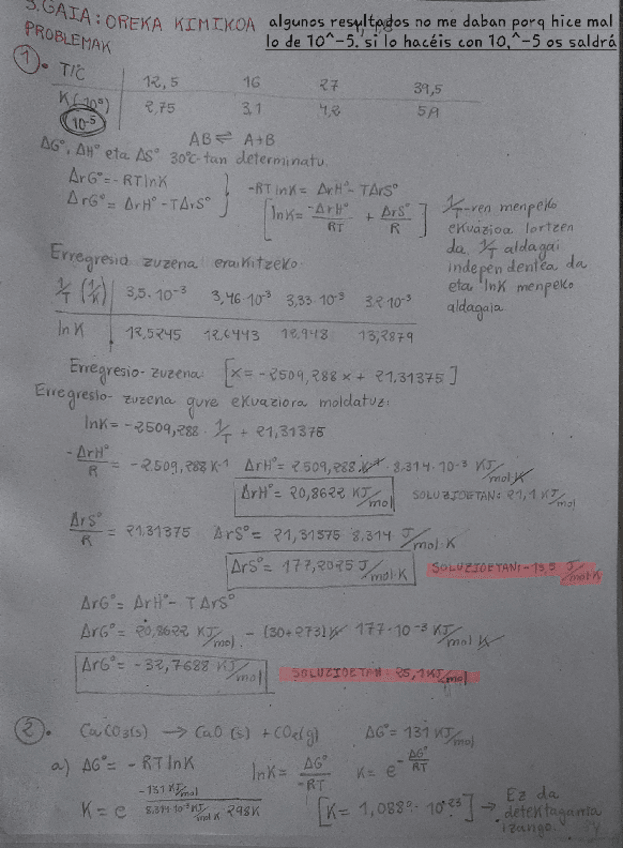 3. GAIA: OREKA KIMIKOA
PROBLEMAK
algunos resultados no me daban porq hice mal
lo de 10^-5. si lo hacéis con 10^-5 os saldrá
1. T/C 12,5 16 27 39,5
K(·10⁵) 2,75 3,1 4,2
10⁻⁵
AB ⇌ A+B
ΔG°, ΔH° eta ΔS° 30°C-tan determinatu.
ΔrG° = -RTlnK
ΔrG° = ΔrH° - TΔrS°
-RTlnK = ΔrH° - TΔrS°
[lnK = -ΔrH°/RT + ΔrS°/R]
1/T-ren menpeko
ekuazioa lortzen
da, 1/T aldagai
independentea da
eta lnK menpeko
aldagaia.
Erregresio zuzena eraikitzeko:
1/T (1/K) 3,5·10⁻³ 3,46·10⁻³ 3,33·10⁻³ 3,2·10⁻³
lnK 12,5245 12,6443 12,948 13,2879
Erregresio-zuzena: [x = -2509,288x + 21,31375]
Erregresio-zuzena gure ekuaziora moldatuz:
lnK = -2509,288 · 1/T + 21,31375
-ΔrH°/R = -2.509,288 K⁻¹ ΔrH° = 2.509,288 K⁻¹ · 8.314·10⁻³ KJ/mol·K
ΔrH° = 20,8622 KJ/mol SOLUZIOETAN: 21,1 KJ/mol
ΔrS°/R = 21,31375 ΔrS° = 21,31575 8,314 J/mol·K
ΔrS° = 177,2025 J/mol·K SOLUZIOETAN: -13,5 J/mol·K
ΔrG° = ΔrH° - TΔrS°
ΔrG° = 20,8622 KJ/mol - (30+273)K 177·10⁻³ KJ/mol K
ΔrG° = -32,7688 KJ/mol SOLUZIOETAN: 25,1 KJ/mol
2. CaCO₃(s) → CaO (s) + CO₂(g) ΔG° = 131 KJ/mol
a) ΔG° = -RTlnK lnK = ΔG°/-RT K = e^-ΔG°/RT
K = e^ -131 KJ/mol / 8,314·10⁻³ KJ/mol K 298K [K = 1,088·10⁻²³] → Ez da
detektagarria
izango.